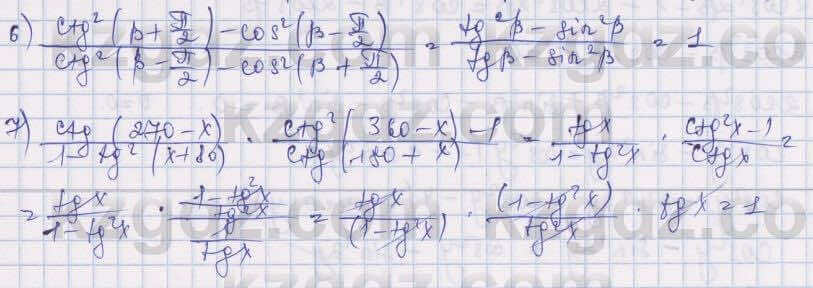 6) (ctg²(β + π/2) - cos²(β - π/2)) / (ctg²(β - π/2) - cos²(β + π/2)) = (tg²β - sin²β) / (tgβ - sin²β) = 1
7) ctg(270 - x) / (1 - tg²(x + 180)) · (ctg²(360 - x) - 1) / ctg(180 + x) = tgx / (1 - tg²x) · (ctg²x - 1) / ctgx =
= tgx / (1 - tg²x) · ((1 - tg²x) / tg²x) / (1 / tgx) = tgx / (1 - tg²x) · (1 - tg²x) / tg²x · tgx = 1
kzgdz.com